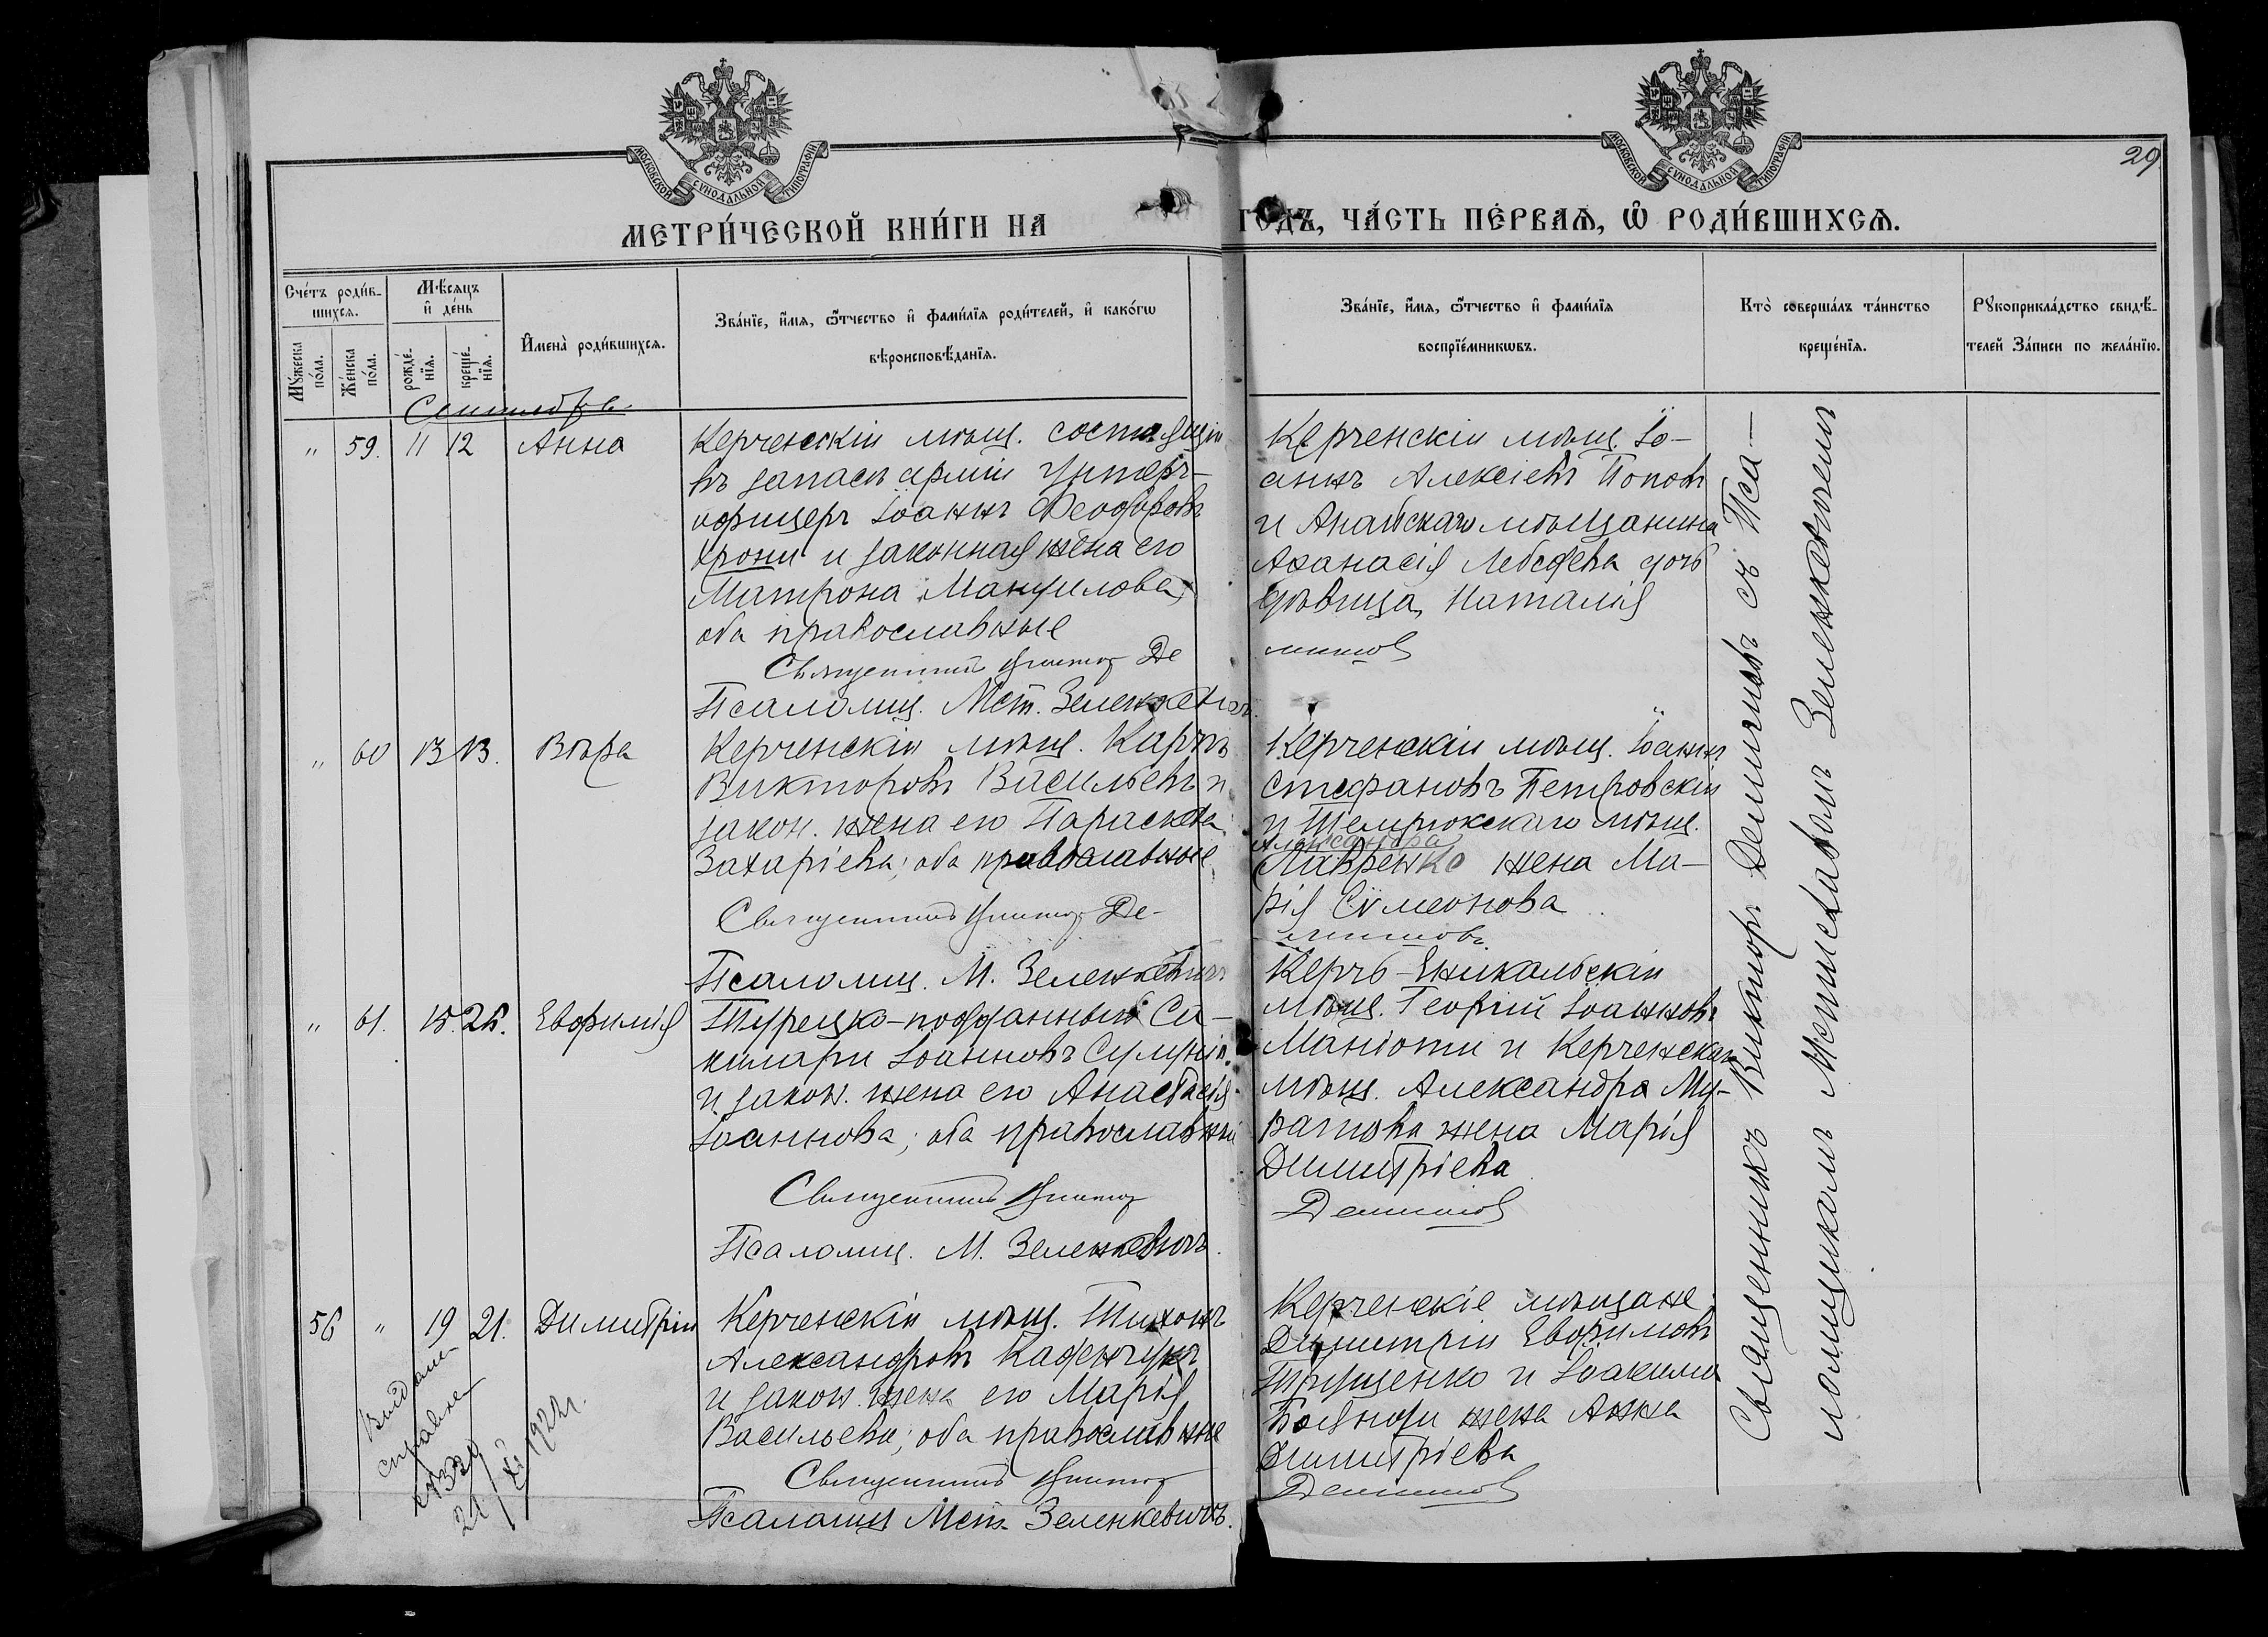 МОСКОВСКОЙ СѴНОДАЛЬНОЙ ТИПОГРАФІИ
МОСКОВСКОЙ СѴНОДАЛЬНОЙ ТИПОГРАФІИ
29.
МЕТРИ́ЧЕСКОЙ КНИ́ГИ НА ГОДЪ, ЧА́СТЬ ПЕ́РВАѦ, Ѡ РОДИ́ВШИХСѦ.
Сче́тъ роди́в-
шихсѧ.
Мꙋ́жеска по́ла.
Же́нска по́ла.
Мѣ́сѧцъ
и҆ де́нь
рожде́-нїѧ.
креще́-нїѧ.
И҆мена̀ роди́вшихсѧ.
Зва́нїе, и҆́мѧ, ѻ҆́тчество и҆ фами́лїѧ роди́телей, и҆ како́гѡ
вѣроисповѣ́данїѧ.
Зва́нїе, и҆́мѧ, ѻ҆́тчество и҆ фами́лїѧ
воспрїе́мникѡвъ.
Кто̀ соверша́лъ та́инство
креще́нїѧ.
Рꙋкоприкла́дство свидѣ́-
телей За́писи по жела́нїю.
Сентябрь
" 59. 11 12 Анна
Керченскій мѣщ. состоящій
въ запасѣ арміи унтеръ-
офицеръ Іоаннъ Феодоровъ
и законная жена его
Матрона Мануилова;
оба православные
Священникъ Викторъ Де
Псаломщ. Мст. Зеленкевичъ.
Керченскій мѣщ. Іо-
аннъ Алексіевъ Поповъ
и Анапскаго мѣщанина
Аѳанасія Лебедева дочь
дѣвица, Наталія
мишовъ
" 60 13 13. Вѣра
Керченскій мѣщ. Карпъ
Викторовъ Васильевъ и
закон. жена его Параскева
Захаріева; оба православные.
Священникъ Викторъ Де-
Псаломщ. М. Зеленкевичъ
Керченскій мѣщ. Іоаннъ
Стефановъ Петровскій
и Темрюкскаго мѣщ.
Александра
Лавренко жена Ма-
рія Сѵмеонова
мишовъ.
" 61. 15. 25. Евфимія
Турецко-подданный Са-
Іоанновъ
и закон. жена его Анастасія
Іоаннова; оба православные
Священникъ Викторъ
Псаломщ. М. Зеленкевичъ.
Керчь-Еникальскій
мѣщ. Георгій Іоанновъ
Маніоти и Керченскаго
мѣщ. Александра Му-
ратова жена Марія
Димитріева
Демишовъ
56 " 19 21. Димитрій
Керченскій мѣщ. Тихонъ
Александровъ
и закон. жена его Марія
Васильева; оба православные
Священникъ Викторъ
Псаломщ Мст. Зеленкевичъ.
Керченскіе мѣщане
Димитрій Евфимовъ
Трущенко и Іоакима
жена Анна
Димитріева
Демишовъ
Священникъ Викторъ Демишовъ съ Пса-
ломщикомъ Мстиславомъ Зеленкевичемъ
Выдана
справка
21/XI 1922 г.